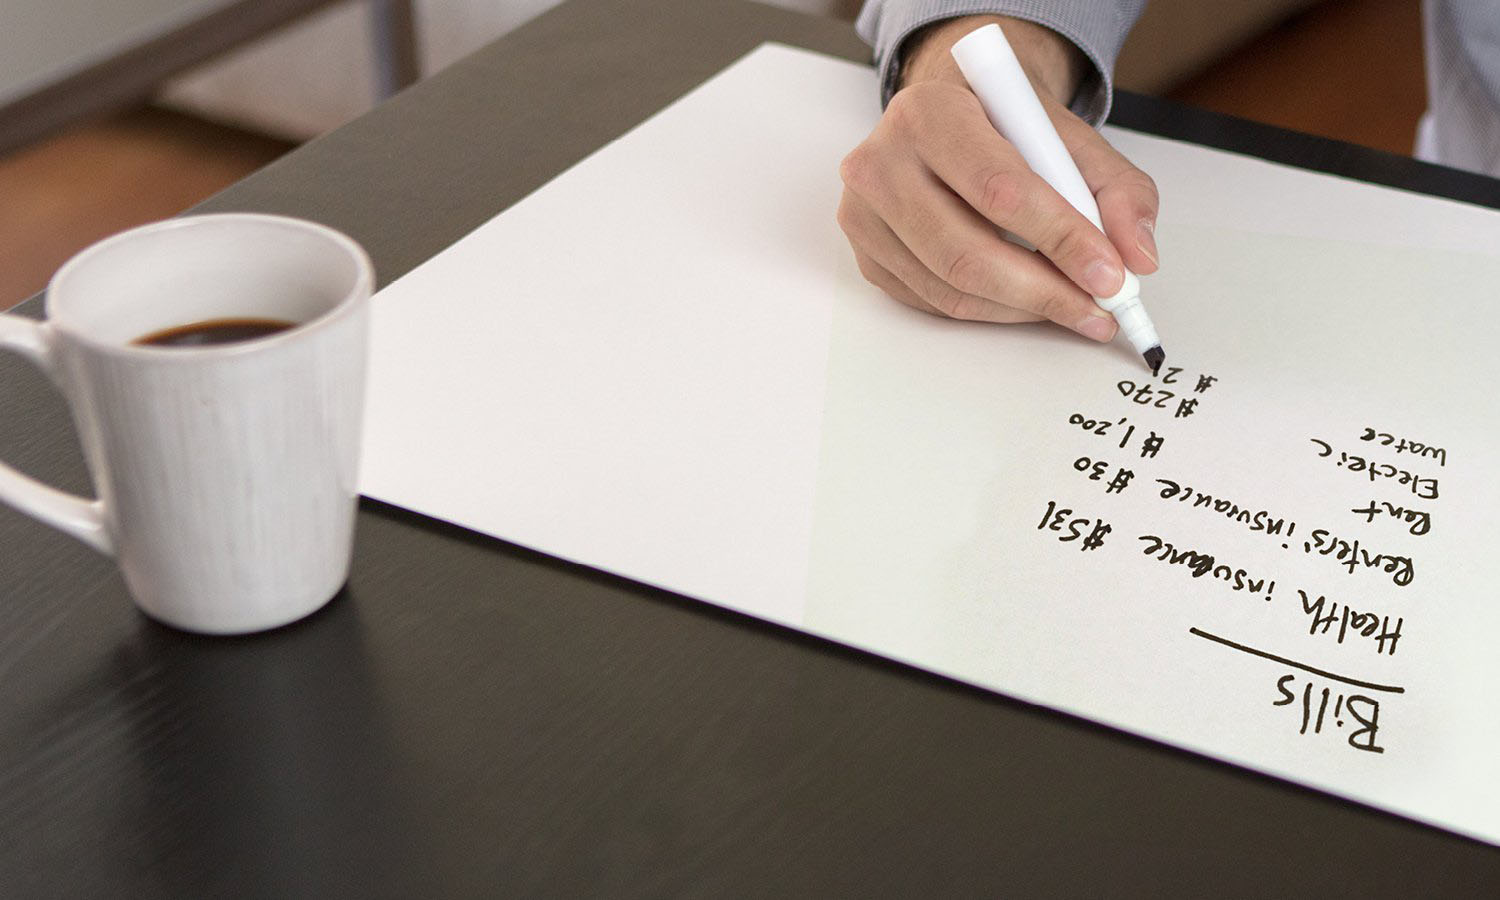 Bills
Health insurance $531
Renters' insurance $30
Rent $1,200
Electric $270
Water $21